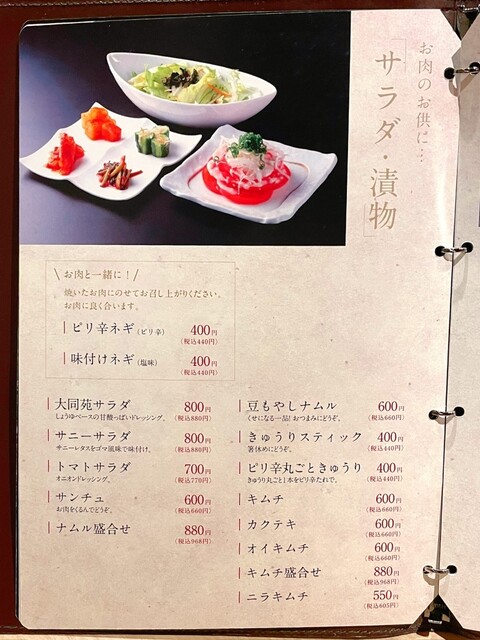 お肉のお供に…
「サラダ・漬物」
\ お肉と一緒に! /
焼いたお肉にのせてお召し上がりください。
お肉に良く合います。
ピリ辛ネギ(ピリ辛) 400円
(税込440円)
味付けネギ(塩味) 400円
(税込440円)
大同苑サラダ 800円
しょうゆベースの甘酸っぱいドレッシング。 (税込880円)
サニーサラダ 800円
サニーレタスをゴマ風味で味付け。 (税込880円)
トマトサラダ 700円
オニオンドレッシング。 (税込770円)
サンチュ 600円
お肉をくるんでどうぞ。 (税込660円)
ナムル盛合せ 880円
(税込968円)
豆もやしナムル 600円
くせになる一品!おつまみにどうぞ。 (税込660円)
きゅうりスティック 400円
箸休めにどうぞ。 (税込440円)
ピリ辛丸ごときゅうり 400円
きゅうり丸ごと1本をピリ辛たれで。 (税込440円)
キムチ 600円
(税込660円)
カクテキ 600円
(税込660円)
オイキムチ 600円
(税込660円)
キムチ盛合せ 880円
(税込968円)
ニラキムチ 550円
(税込605円)